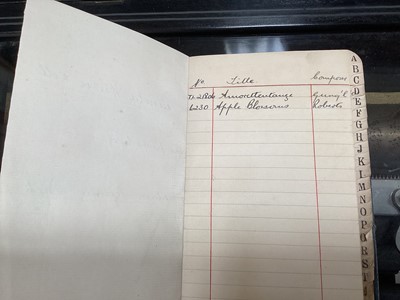 No. Title Composer
Amorettentänze Gung'l
6230 Apple Blossoms Roberts
A
B
C
D
E
F
G
H
J
K
L
M
N
O
P
Q
R
S